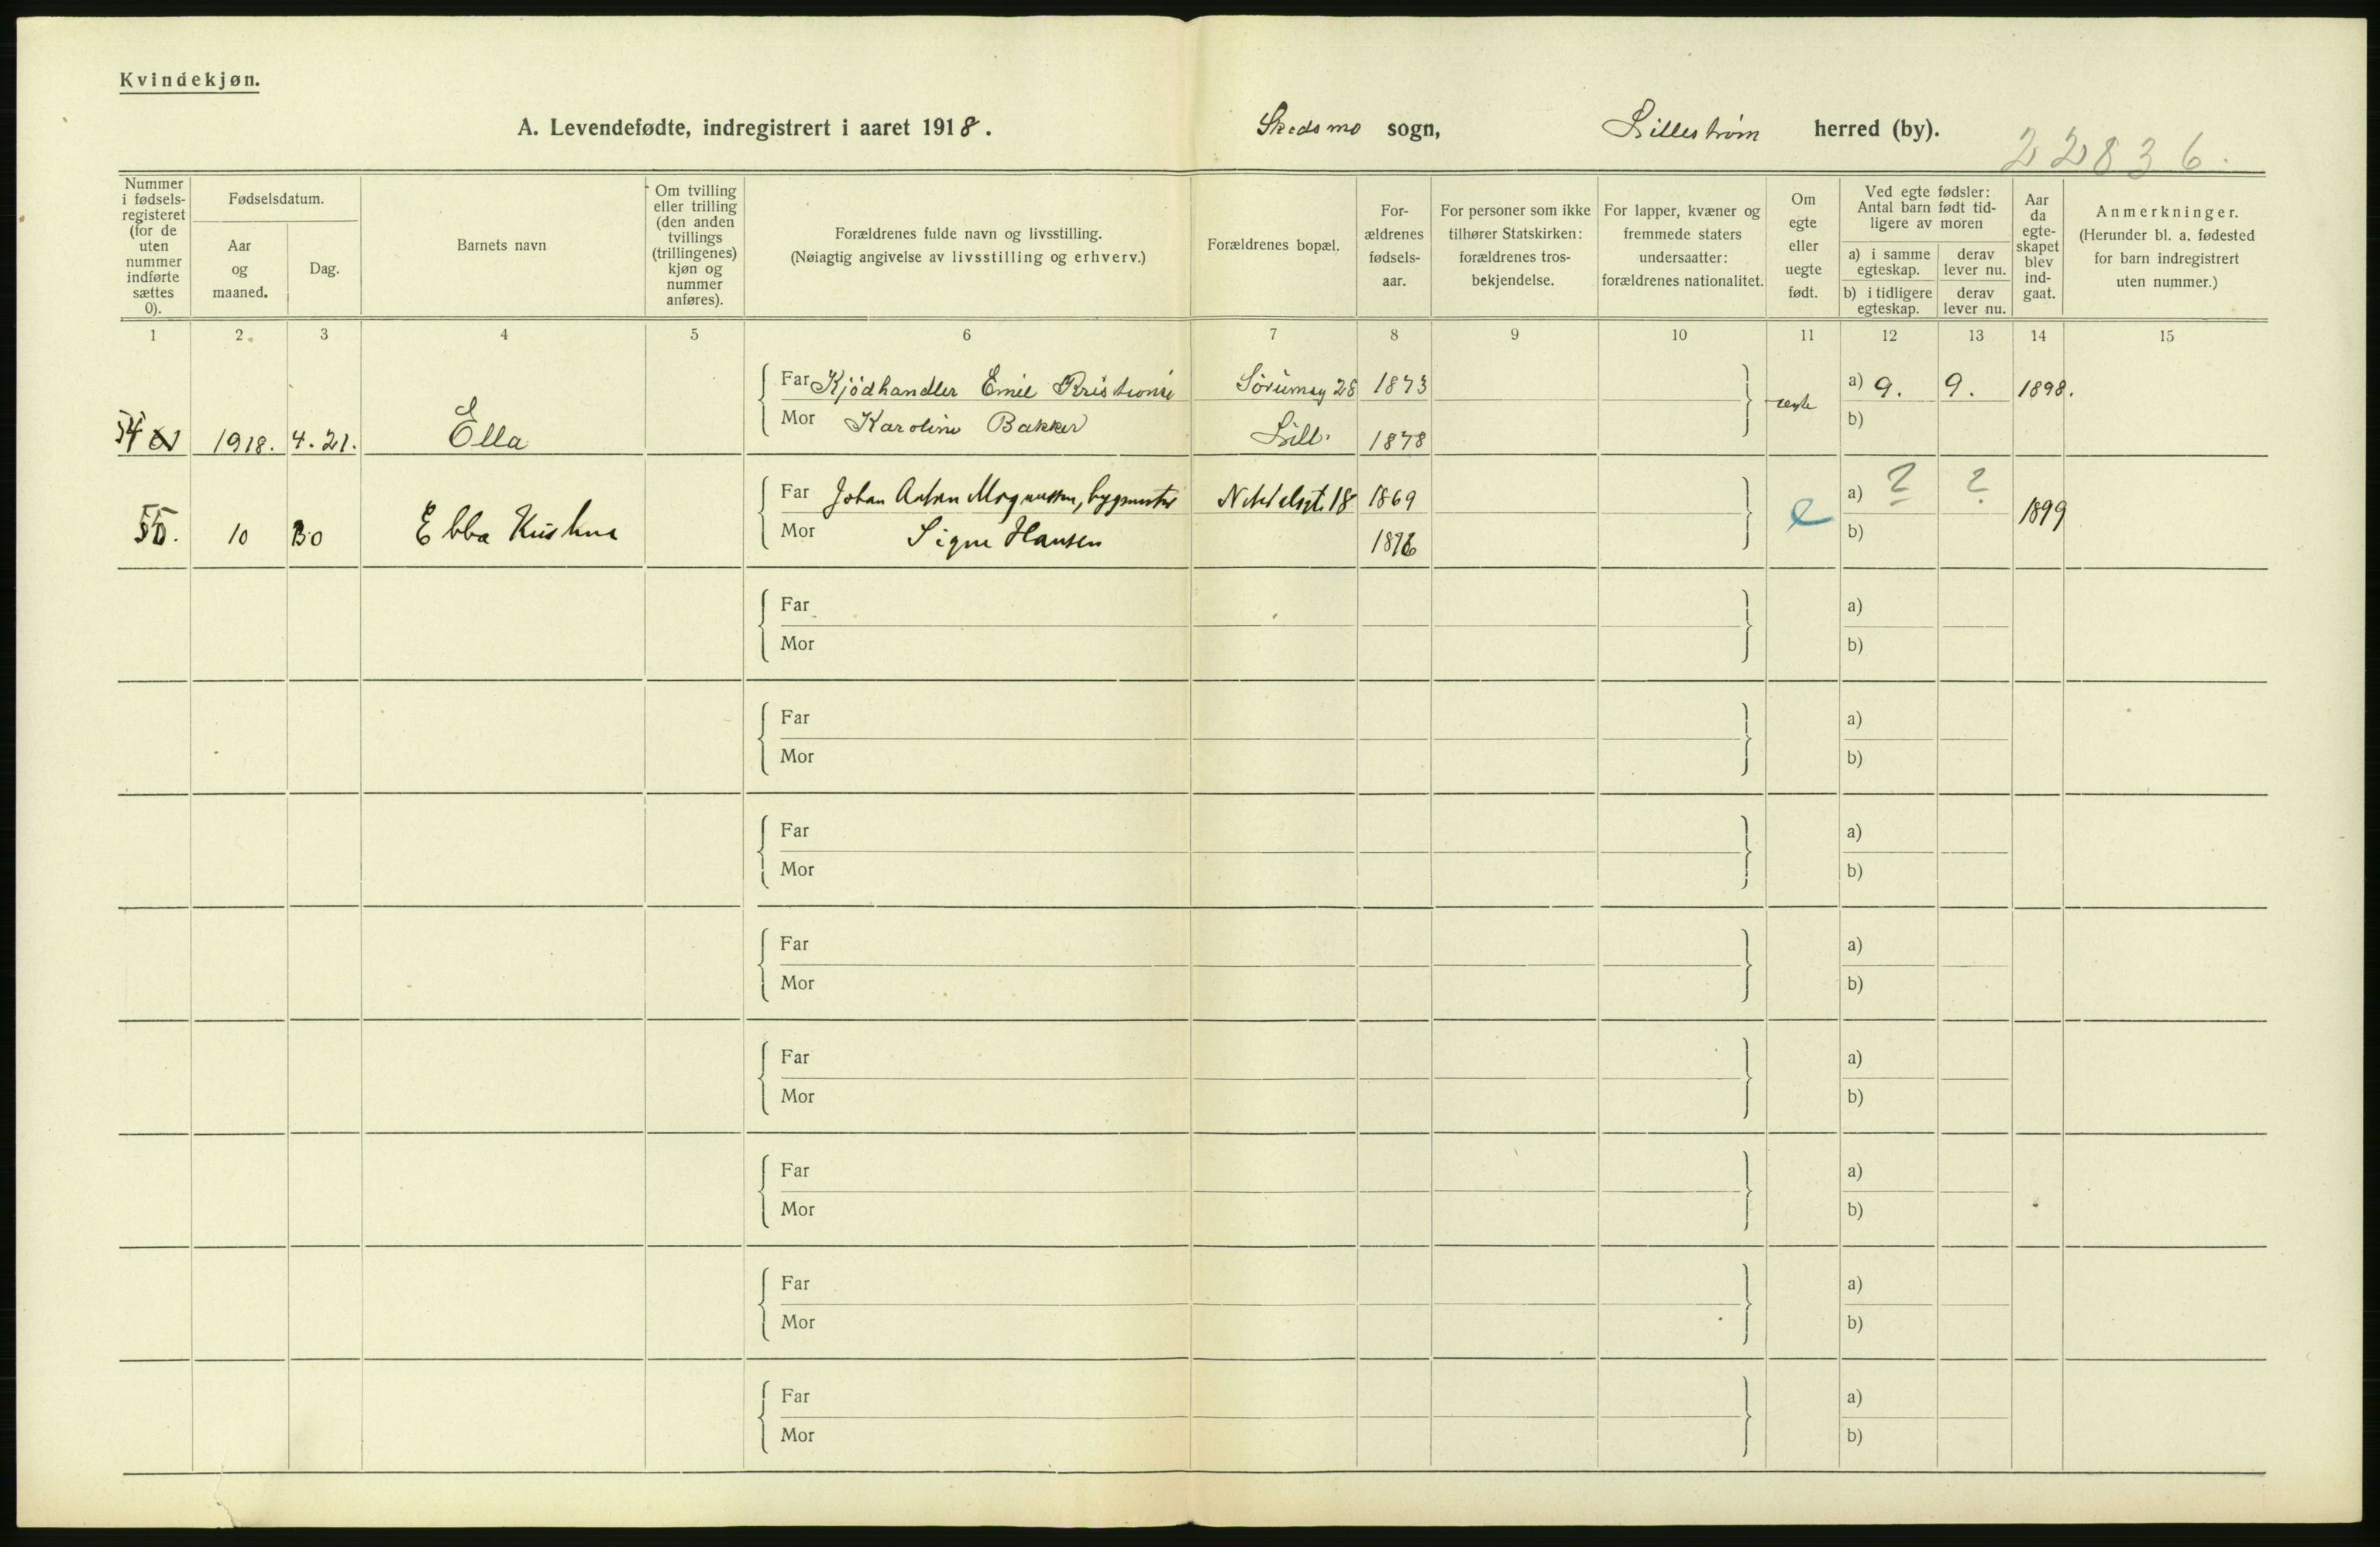 Kvindekjøn.
A. Levendefødte, indregistrert i aaret 1918. Skedsmo sogn, Lillestrøm herred (by).
22836.
Nummer i fødsels-registeret (for de uten nummer indførte sættes 0).
Fødselsdatum.
Aar og maaned.
Dag.
Barnets navn
Om tvilling eller trilling (den anden tvillings (trillingenes) kjøn og nummer anføres).
Forældrenes fulde navn og livsstilling.
(Nøiagtig angivelse av livsstilling og erhverv.)
Forældrenes bopæl.
For-ældrenes fødsels-aar.
For personer som ikke tilhører Statskirken: forældrenes tros-bekjendelse.
For lapper, kvæner og fremmede staters undersaatter: forældrenes nationalitet.
Om egte eller uegte født.
Ved egte fødsler: Antal barn født tid-ligere av moren
a) i samme egteskap. derav lever nu.
b) i tidligere egteskap. derav lever nu.
Aar da egte-skapet blev ind-gaat.
Anmerkninger.
(Herunder bl. a. fødested for barn indregistrert uten nummer.)
1 2 3 4 5 6 7 8 9 10 11 12 13 14 15
Far Kjödhandler Emil Sörumsg 28 1873 a) 9. 9. 1898.
54 1918. 4. 21. Ella Mor Karoline Bakker Lill. 1878 egte b)
Far Johan Anton Magnussen, bygmester 18 1869 e a) ? ? 1899
55. 10 30 Ebba Mor Signe Hansen 1876 b)
Far a)
Mor b)
Far a)
Mor b)
Far a)
Mor b)
Far a)
Mor b)
Far a)
Mor b)
Far a)
Mor b)
Far a)
Mor b)
Far a)
Mor b)